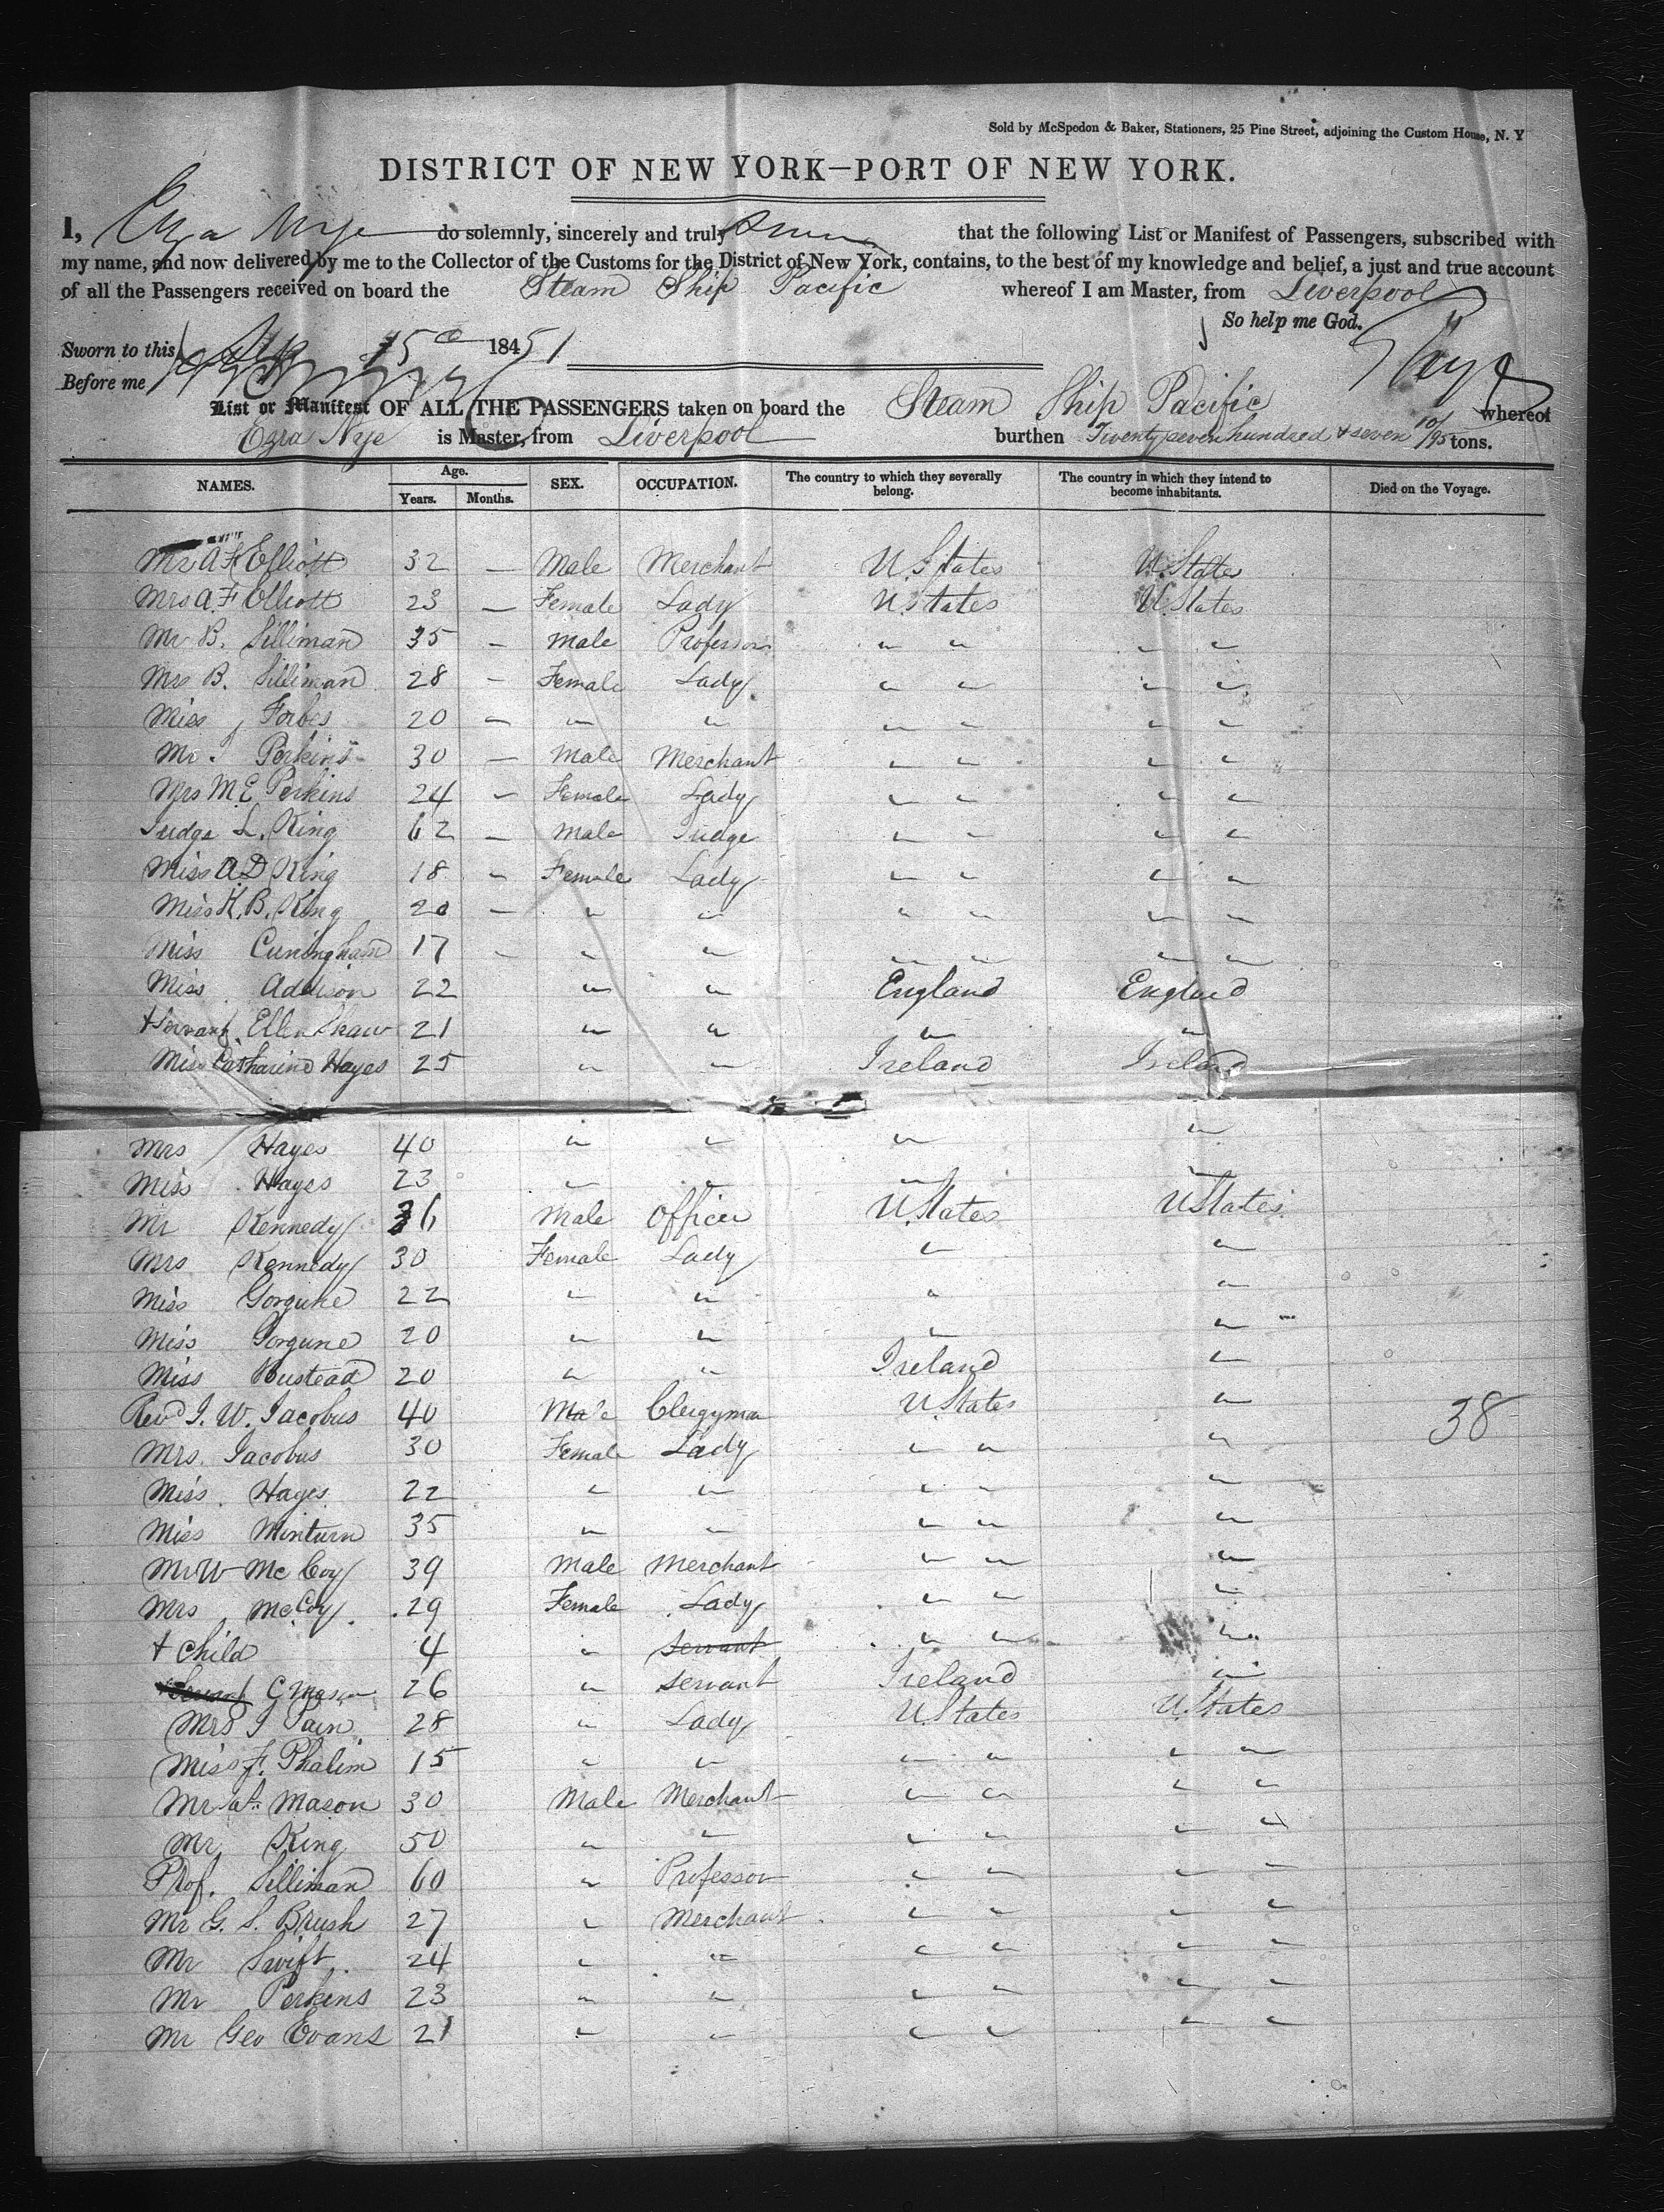 Sold by McSpedon & Baker, Stationers, 25 Pine Street, adjoining the Custom House, N. Y
DISTRICT OF NEW YORK—PORT OF NEW YORK.
I, Ezra Nye do solemnly, sincerely and truly Swear that the following List or Manifest of Passengers, subscribed with
my name, and now delivered by me to the Collector of the Customs for the District of New York, contains, to the best of my knowledge and belief, a just and true account
of all the Passengers received on board the Steam Ship Pacific whereof I am Master, from Liverpool
So help me God.
Sworn to this Sep 15 184 51
Before me
Nye
List or Manifest OF ALL THE PASSENGERS taken on board the Steam Ship Pacific whereof
Ezra Nye is Master, from Liverpool burthen Twenty seven hundred & seven 10/95 tons.
NAMES. Age. Years. Months. SEX. OCCUPATION. The country to which they severally belong. The country in which they intend to become inhabitants. Died on the Voyage.
Mr A F Elliott 32 — Male Merchant U. States U. States
Mrs A. F Elliott 23 — Female Lady U. States U States
Mr B. Silliman 35 — Male Professor " " " "
Mrs B. Silliman 28 — Female Lady " " " "
Miss Forbes 20 — " " " " " "
Mr. Perkins 30 — Male Merchant " " " "
Mrs M. E Perkins 24 — Female Lady " " " "
Judge L. King 62 — Male Judge " " " "
Miss A D King 18 — Female Lady " " " "
Miss K. B. King 20 — " " " " " "
Miss Cuningham 17 — " " " " " "
Miss Addison 22 " " England England
+ Servant Ellen Shaw 21 " " " "
Miss Catharine Hayes 25 " " Ireland Ireland
Mrs Hayes 40 " " " "
Miss Hayes 23 " " " "
Mr Kennedy 36 Male Officer U. States U States
Mrs Kennedy 30 Female Lady " "
Miss Gorgune 22 " " " "
Miss Gorgune 20 " " " "
Miss Bustead 20 " " Ireland "
Revd J. W. Jacobus 40 Male Clergyman U. States " 38
Mrs. Jacobus 30 Female Lady " " "
Miss. Hayes 22 " " " " "
Miss Minturn 35 " " " " "
Mr W Mc Coy 39 Male Merchant " " "
Mrs McCoy 29 Female Lady " " "
+ Child 4 " servant " " "
Servant C Mason 26 " servant Ireland "
Mrs J Pain 28 " Lady U. States U. States
Miss F. Phalim 15 " " " " " "
Mr At. Mason 30 Male Merchant " " " "
Mr King 50 " " " " " "
Prof. Silliman 60 " Professor " " " "
Mr G. S. Brush 27 " Merchant " " " "
Mr Swift 24 " " " " " "
Mr Perkins 23 " " " " " "
Mr Geo Evans 21 " " " " " "